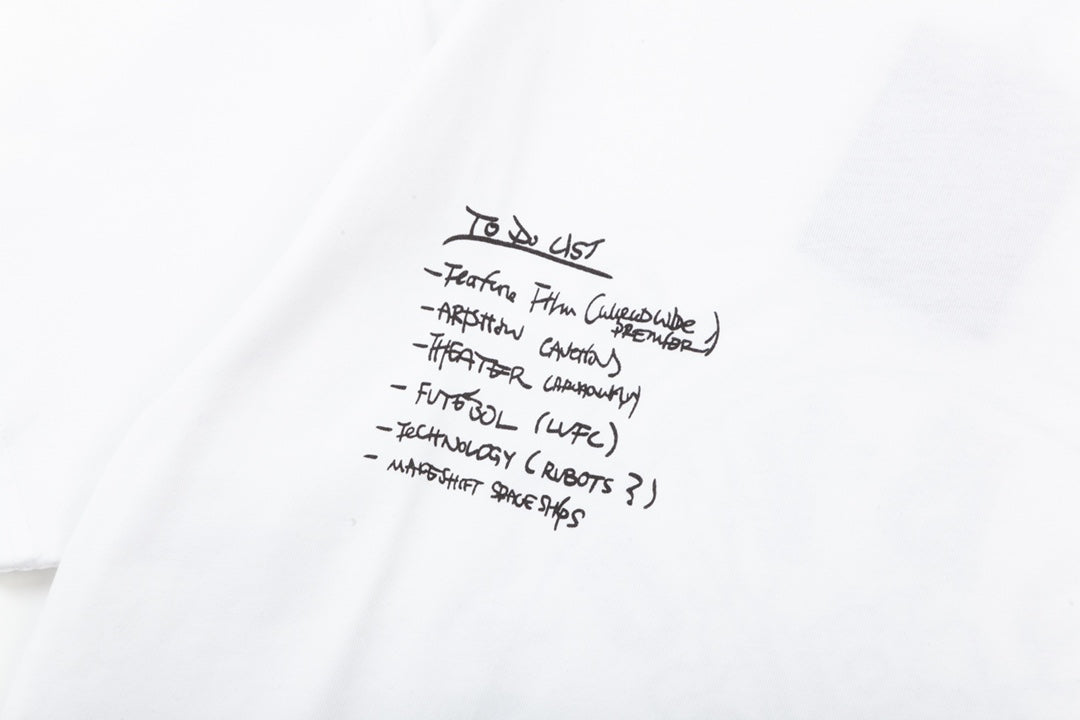 TO DO LIST
- Feature Film (WORLDWIDE
PREMIER)
- ARTSHOW
- THEATER
- FUTEBOL (LVFC)
- TECHNOLOGY (ROBOTS ?)
- MAKESHIFT SPACESHIPS